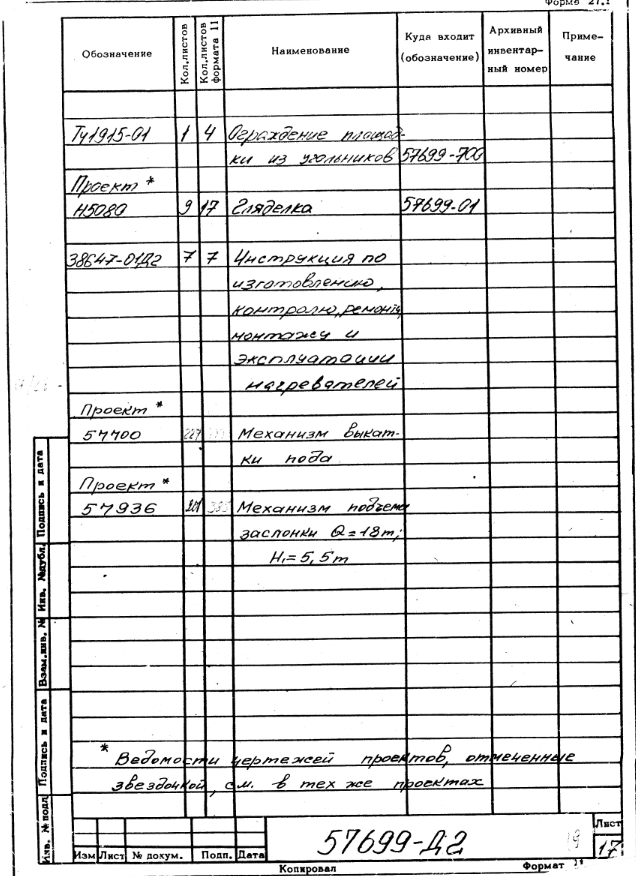 Форма 27.1
Обозначение Кол.листов Кол.листов формата 11 Наименование Куда входит (обозначение) Архивный инвентар-ный номер Приме-чание
ТЧ1915-01 1 4 Ограждение площад-
ки из угольников 57699-700
Проект *
Н5080 9 17 Гляделка 57699-01
38647-01Д2 7 7 Инструкция по
изготовлению,
контролю, ремонту,
монтажу и
эксплуатации
нагревателей
Проект *
57700 227 Механизм выкат-
ки пода
Проект *
57936 201 Механизм подъема
заслонки Q=18т;
H₁=5,5т
* Ведомости чертежей проектов, отмеченные
звездочкой, см. в тех же проектах
Инв. № подл Подпись и дата Взам.инв. № Инв. №дубл. Подпись и дата
57699-Д2 19
Лист
17
Изм Лист № докум. Подп. Дата
Копировал Формат